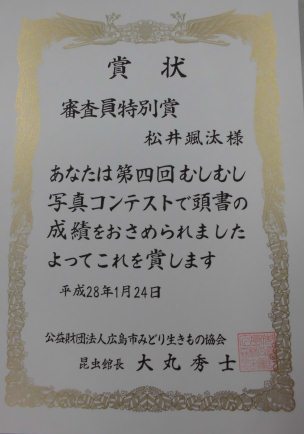 賞状
審査員特別賞
松井颯汰様
あなたは第四回むしむし
写真コンテストで頭書の
成績をおさめられました
よってこれを賞します
平成28年1月24日
公益財団法人広島市みどり生きもの協会
昆虫館長 大丸秀士